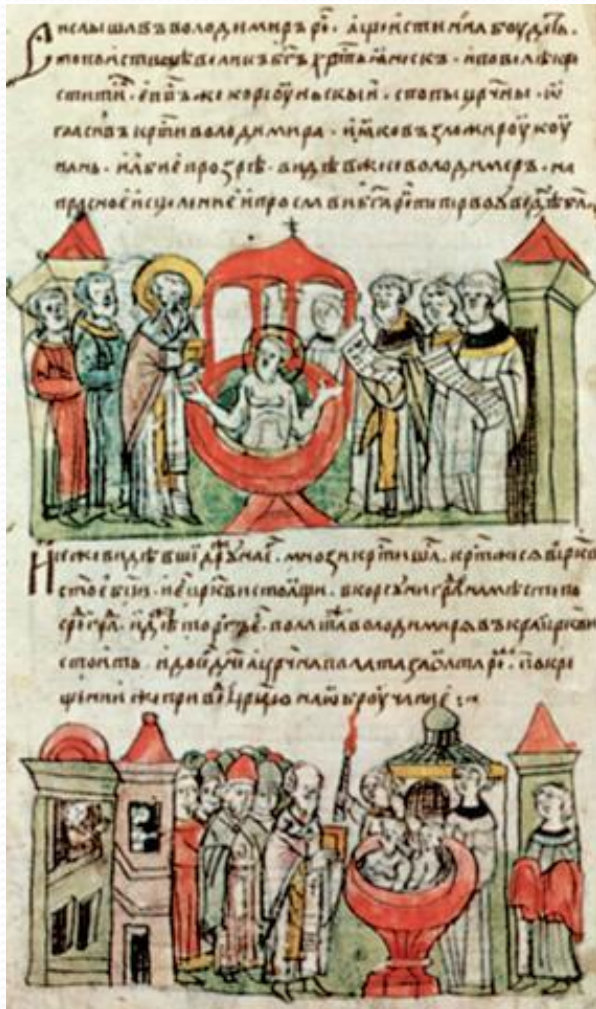 Си слышавъ володимиръ рⷱ҇. аще истинна боудеⷮ.
то по истинѣ великъ бг҃ъ хрⷭ҇тьꙗнескъ. и повелѣ кре
стити. епⷭ҇пъ же корсоуньскыи. с попы црч҃ны. ѡ
гласивъ крⷭ҇ти володимира. и ꙗко възложи роукоу
нань. и абие прозрѣ. видѣвже се володимеръ. на
прасное исцеление и прослави бг҃а
И се же видѣвши дроужина еⷢ҇. мнози крⷭ҇тишⷭ҇. крⷭ҇тижеся въ црк҃ви
ст҃ое бц҃и. и е црк҃ви стоящи. в корсуни градѣ на мѣсти по
средѣ граⷣ. идѣже торгъ. полата володимиря въ краи црк҃ви
стоить. и до сеⷢ҇ дн҃и. а цр҃чна полата за олтареⷨ. по кре
щении же приведе цр҃цю на ѡброучание